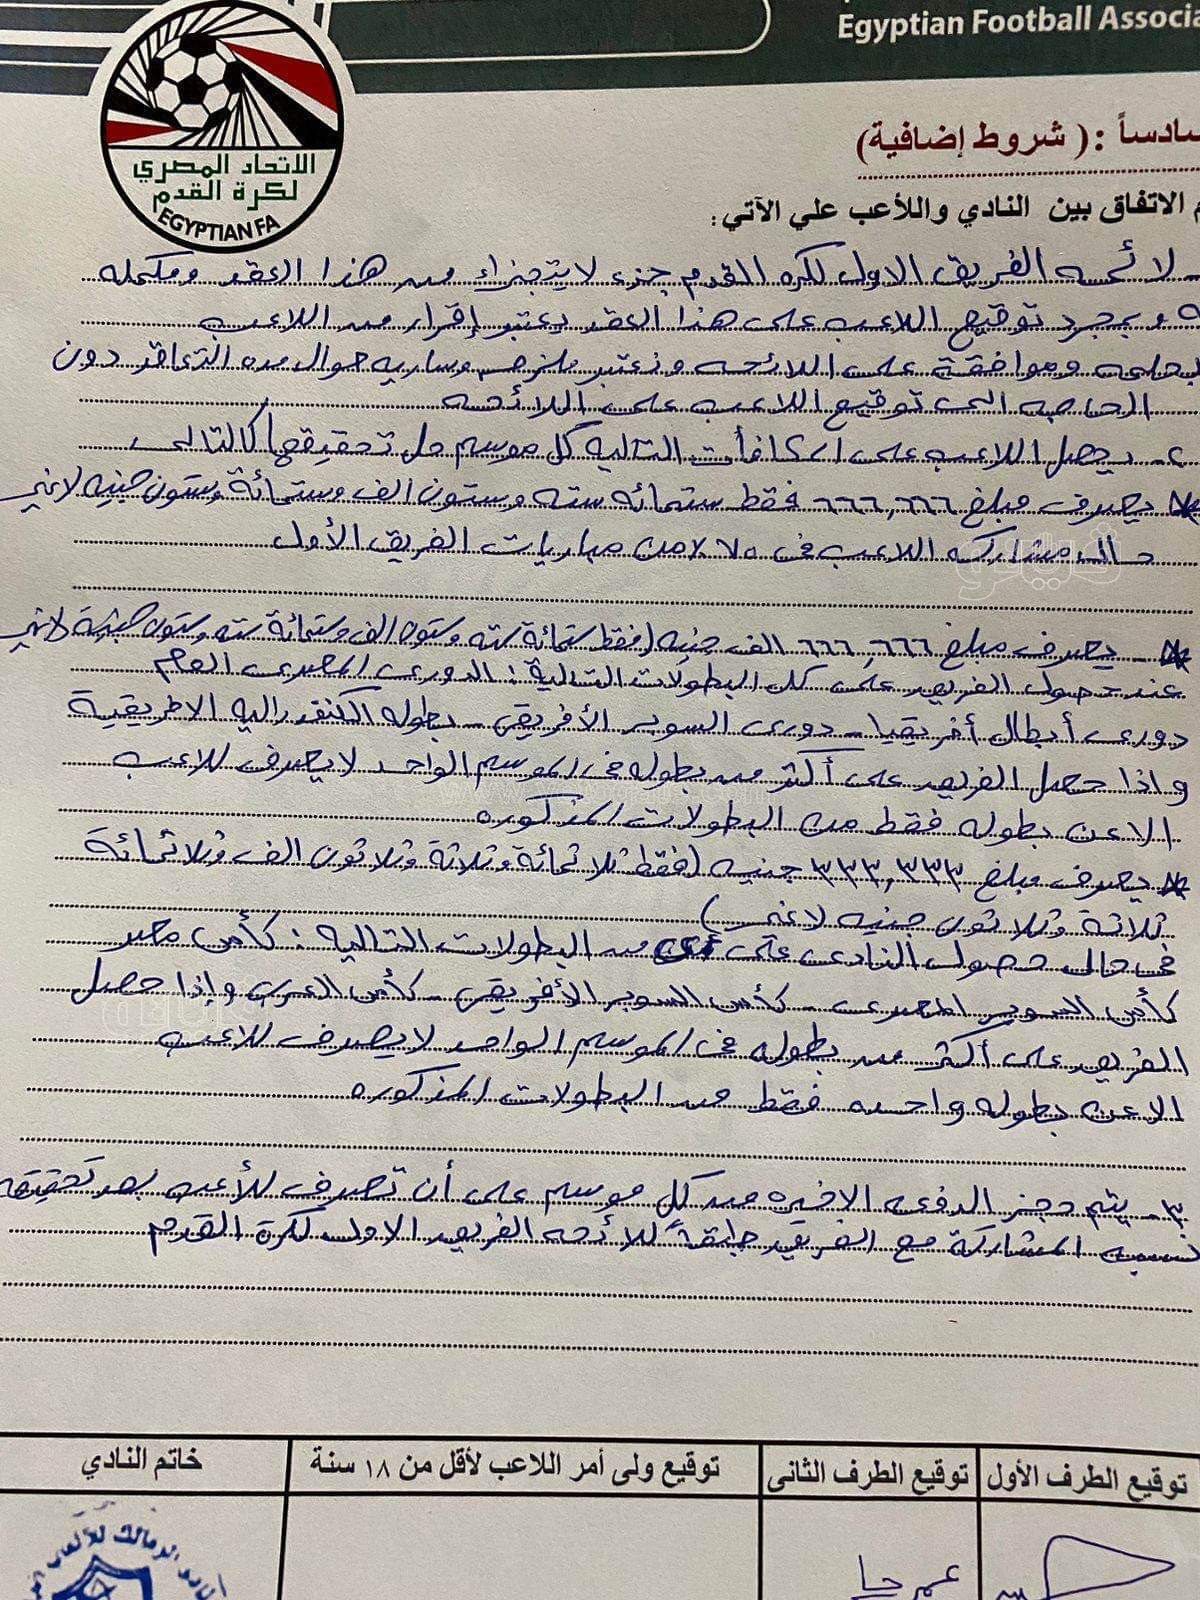 Egyptian Football Associa
الاتحاد المصري
لكرة القدم
EGYPTIAN FA
سادساً : ( شروط إضافية)
م الاتفاق بين النادي واللاعب علي الآتي :
- لائحه الفريق الاول لكره القدم جزء لا يتجزاء من هذا العقد ومكمله
ه وبمجرد توقيع اللاعب على هذا العقد يعتبر إقرار من اللاعب
وموافقة على اللائحه وتعتبر ملزمه وساريه طوال مده التعاقد دون
الحاجه الى توقيع اللاعب على اللائحه
٢- يحصل اللاعب على المكافأت التاليه كل موسم حال تحقيقها كالتالى
* يصرف مبلغ ٦٦٦,٦٦٦ فقط ستمائه سته وستون الف وستمائة وستون جنيه لاغير
حال مشاركه اللاعب فى ٧٠٪ من مباريات الفريق الأول
* - يصرف مبلغ ٦٦٦,٦٦٦ الف جنيه (فقط ستمائة سته وستون الف وستمائة سته وستون جنيهة لاغير
عند حصول الفريق على كل البطولات التالية : الدورى المصرى العام
دورى أبطال أفريقيا - دورى السوبر الأفريقى - بطوله الكنفدراليه الافريقية
واذا حصل الفريق على أكثر من بطوله فى الموسم الواحد لا يصرف للاعب
الا عن بطوله فقط من البطولات المذكوره
* يصرف مبلغ ٣٣٣,٣٣٣ جنيه (فقط ثلاثمائة وثلاثة وثلاثون الف وثلاثمائة
ثلاثة وثلاثون جنيه لاغير )
فى حال حصول النادى على أى من البطولات التاليه : كأس مصر
كأس السوبر المصرى - كأس السوبر الأفريقى - كأس العرب وإذا حصل
الفريق على أكثر من بطوله فى الموسم الواحد لا يصرف للاعب
الا عن بطوله واحده فقط من البطولات المذكوره
٣- يتم حجز الدفعه الاخيره من كل موسم على أن تصرف للاعب بعد تحقيقه
نسبه المشاركة مع الفريق طبقاً للائحه الفريق الاول لكرة القدم
توقيع الطرف الأول
توقيع الطرف الثانى
توقيع ولى أمر اللاعب لأقل من ١٨ سنة
خاتم النادي
الزمالك للألعاب